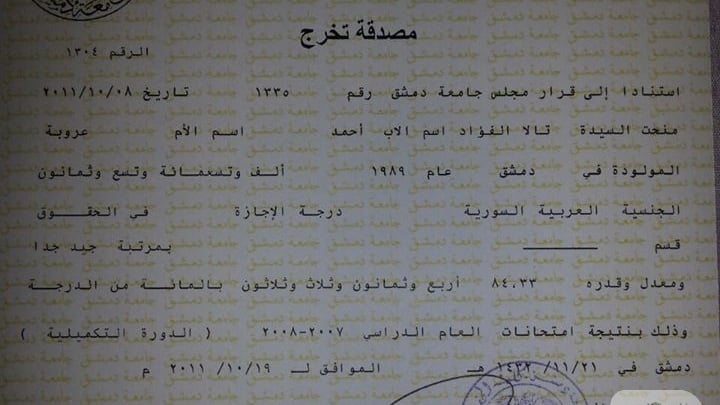 مصدقة تخرج
الرقم ١٣٠٤
استنادا إلى قرار مجلس جامعة دمشق رقم ١٣٣٥ تاريخ ٢٠١١/١٠/٠٨
منحت السيدة تالا الفؤاد اسم الاب أحمد اسم الأم عروبة
المولودة في دمشق عام ١٩٨٩ ألف وتسعمائة وتسع وثمانون
الجنسية العربية السورية درجة الإجازة في الحقوق
قسم ـــــــ بمرتبة جيد جدا
ومعدل وقدره ٨٤،٣٣ أربع وثمانون وثلاث وثلاثون بالمائة من الدرجة
وذلك بنتيجة امتحانات العام الدراسي ٢٠٠٧-٢٠٠٨ ( الدورة التكميلية )
دمشق في ١٤٣٢/١١/٢١ هـ الموافق لـ ٢٠١١/١٠/١٩ م